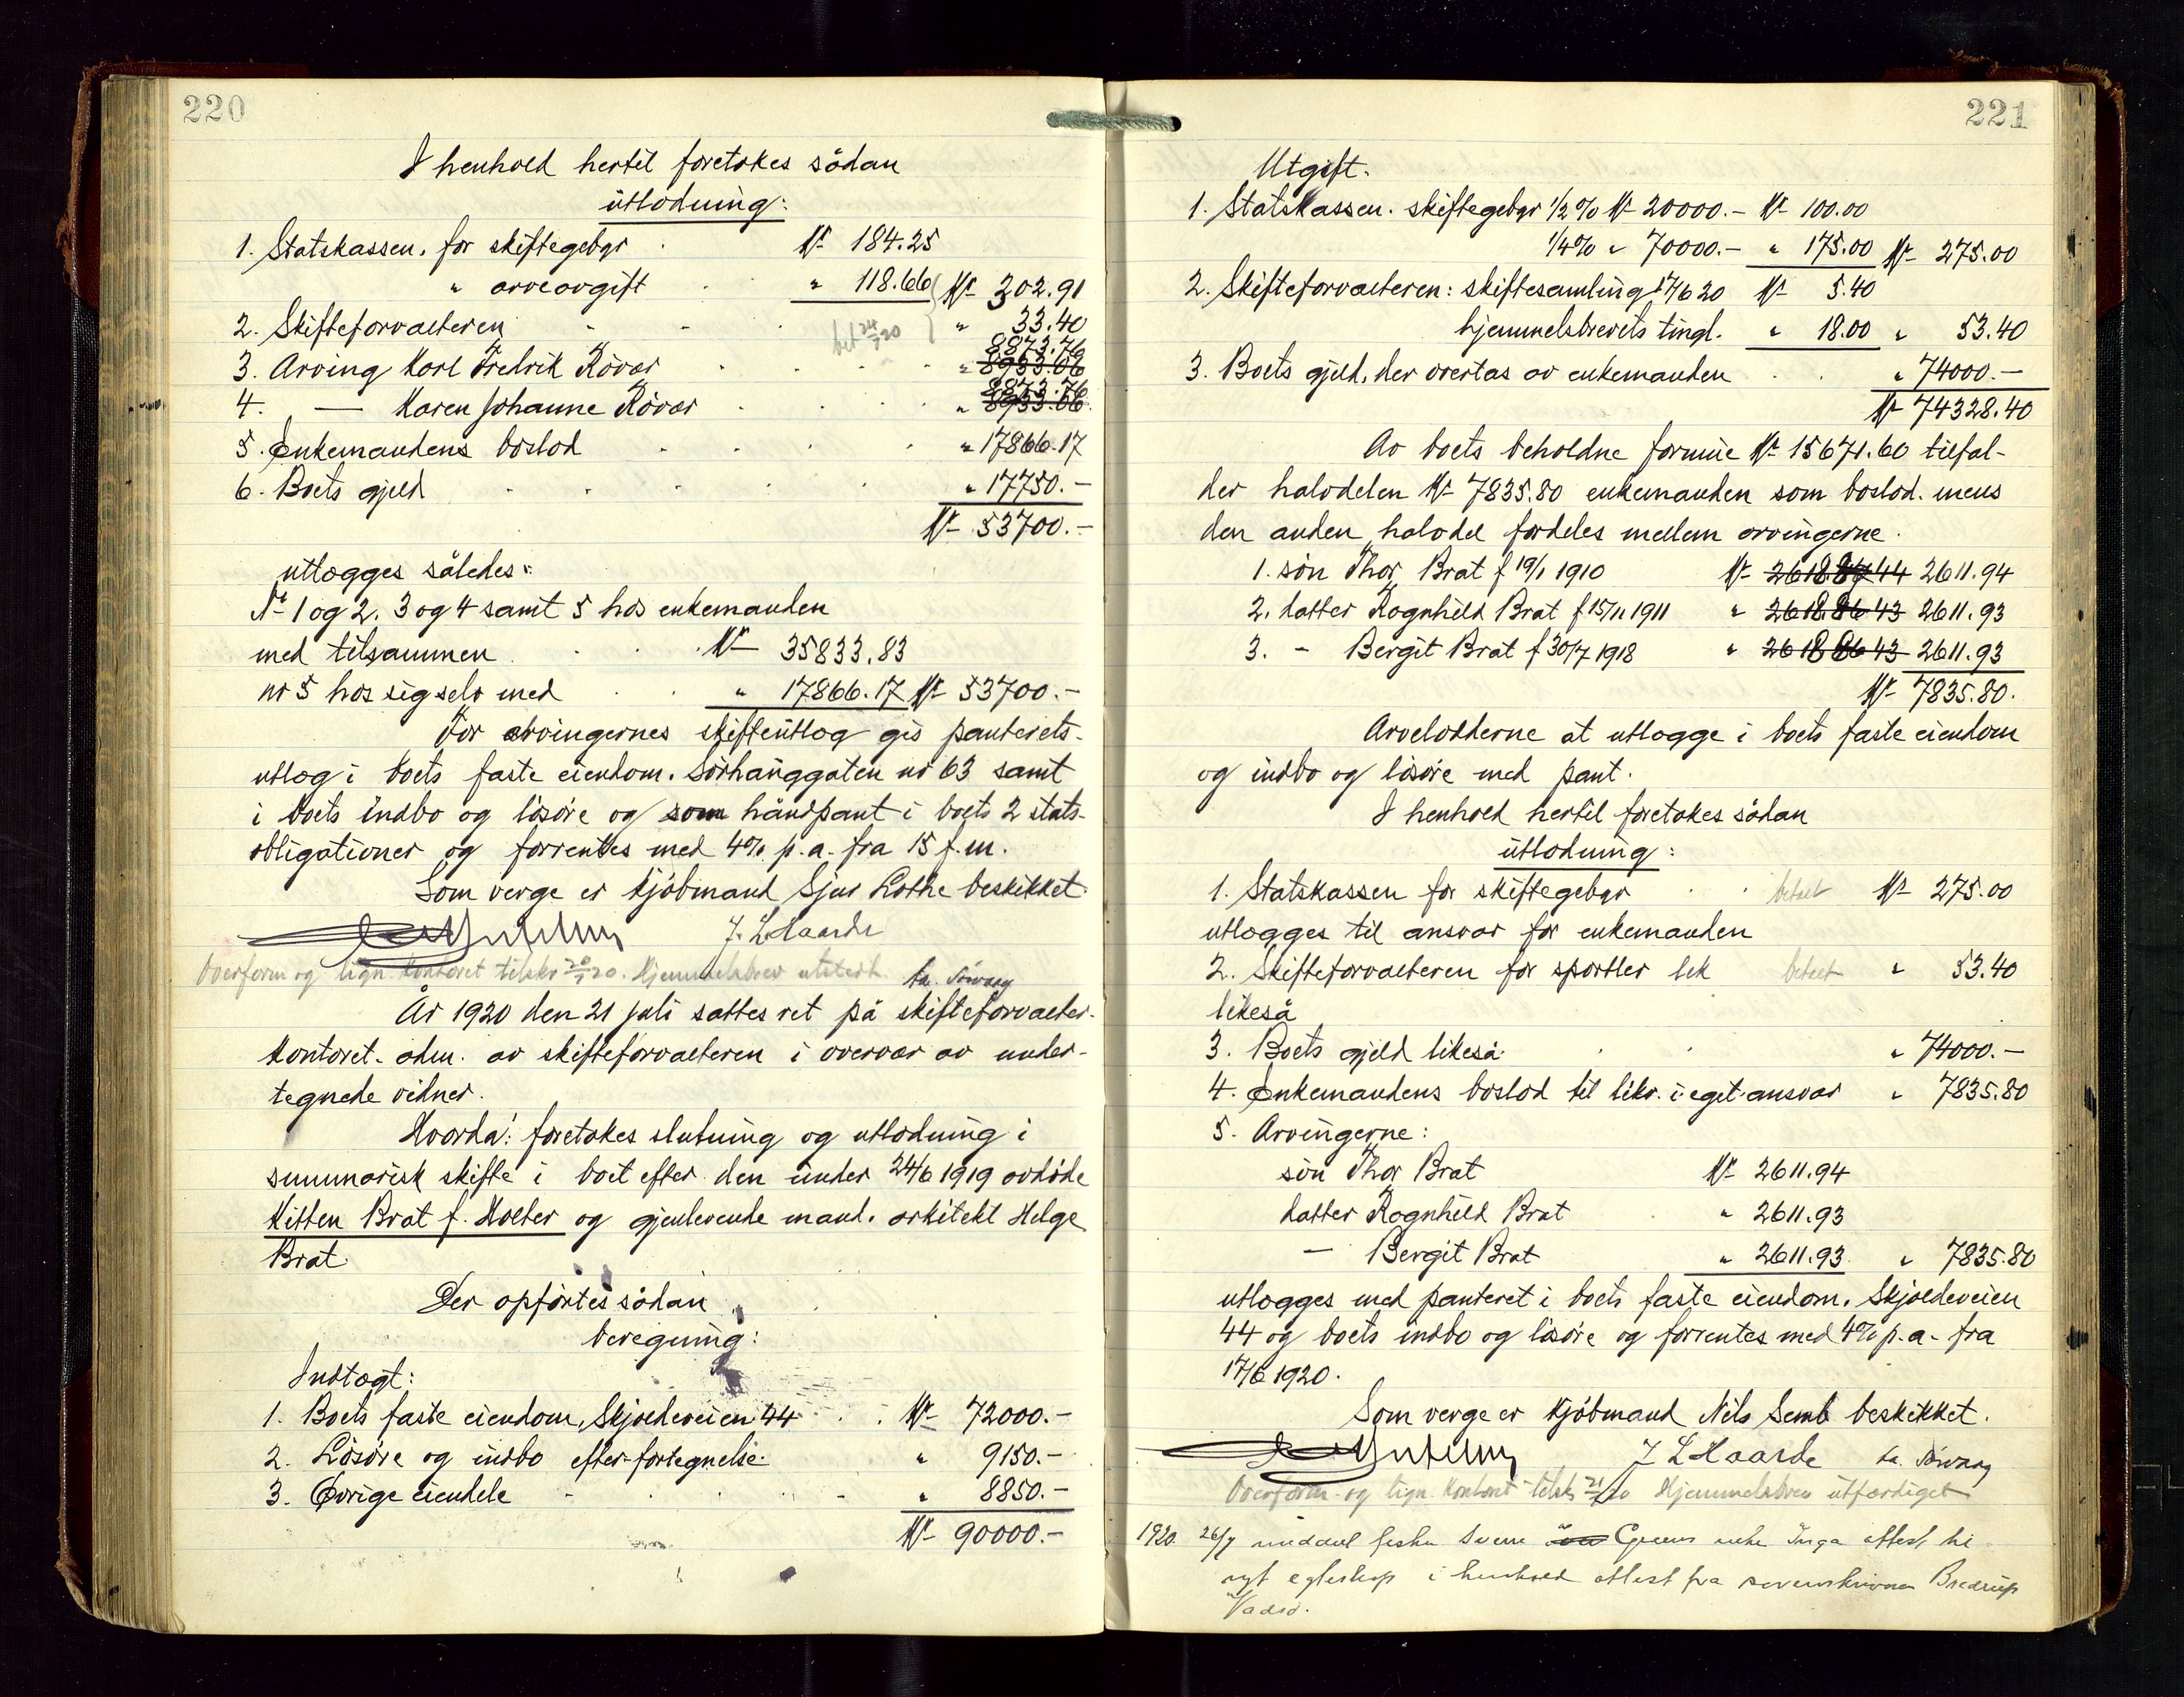 220
I henhold hertil foretakes sådan
utlodning:
1. Statskassen, for skiftegebyr Kr 184.25
" arveavgift " 118.66 Kr 302.91
2. Skifteforvalteren bet 24/7 20 " 33.40
8873.76
3. Arving Karl Fredrik Rövær " 8933.06
8873.76
4. — Karen Johanne Rövær " 8933.06
5. Enkemandens boslod " 17866.17
6. Boets gjeld " 17750.-
Kr 53700.-
utlægges således:
No 1 og 2, 3 og 4 samt 5 hos enkemanden
med tilsammen Kr 35833.83
nr 5 hos sig selv med " 17866.17 Kr 53700.-
For arvingernes skifteutlæg gis panterets-
utlæg i boets faste eiendom, Sörhauggaten nr 63 samt
i boets indbo og lösöre og som håndpant i boets 2 stats-
obligationer og forrentes med 4% p.a. fra 15 f.m.
Som verge er kjöbmand Sjur Lothe beskikket.
J. L. Haarde
Overform og lign. kontoret tilskr 20/7 20. Hjemmelsbrev utstedt.
År 1920 den 21 juli sattes ret på skifteforvalter-
kontoret, adm. av skifteforvalteren i overvær av under-
tegnede vidner.
Hvorda: foretakes slutning og utlodning i
summarisk skifte i boet efter den under 24/6 1919 avdöde
Kitten Brat f. Holter og gjenlevende mand, arkitekt Helge
Brat.
Der opförtes sådan
beregning:
Indtægt:
1. Boets faste eiendom, Skjoldeveien 44 Kr 72000.-
2. Lösöre og indbo efter fortegnelse " 9150.-
3. Øvrige eiendele " 8850.-
Kr 90000.-
221
Utgift.
1. Statskassen, skiftegebyr 1/2% Kr 20000.- Kr 100.00
1/4% " 70000.- " 175.00 Kr 275.00
2. Skifteforvalteren: skiftesamling 17/6 20 Kr 5.40
hjemmelsbrevets tingl. " 18.00 " 53.40
3. Boets gjeld, der overtas av enkemanden " 74000.-
Kr 74328.40
Av boets beholdne formue Kr 15671.60 tilfal-
der halvdelen Kr 7835.80 enkemanden som boslod, mens
den anden halvdel fordeles mellem arvingerne.
1. sön Thor Brat f 19/1 1910 Kr 2611.94
2. datter Ragnhild Brat f 15/11 1911 " 2611.93
3. - Bergit Brat f 30/7 1918 " 2611.93
Kr 7835.80.
Arvelodderne at utlægge i boets faste eiendom
og indbo og lösöre med pant.
I henhold hertil foretakes sådan
utlodning:
1. Statskassen for skiftegebyr betalt Kr 275.00
utlægges til ansvar for enkemanden
2. Skifteforvalteren for sportler lik betalt " 53.40
likeså
3. Boets gjeld likeså " 74000.-
4. Enkemandens boslod til likv. i eget ansvar " 7835.80
5. Arvingerne:
sön Thor Brat Kr 2611.94
datter Ragnhild Brat " 2611.93
- Bergit Brat " 2611.93 " 7835.80
utlægges med panteret i boets faste eiendom, Skjoldeveien
44 og boets indbo og lösöre og forrentes med 4% p.a. fra
17/6 1920.
Som verge er kjöbmand Nils Semb beskikket.
J L Haarde
Overform. og lign. kontoret tilskr 21/7 20 Hjemmelsbrev utfærdiget
1920. 26/7 meddel enke Inga attest
nyt egteskap i henhold attest fra sorenskriveren Bredrup
Vadsö.